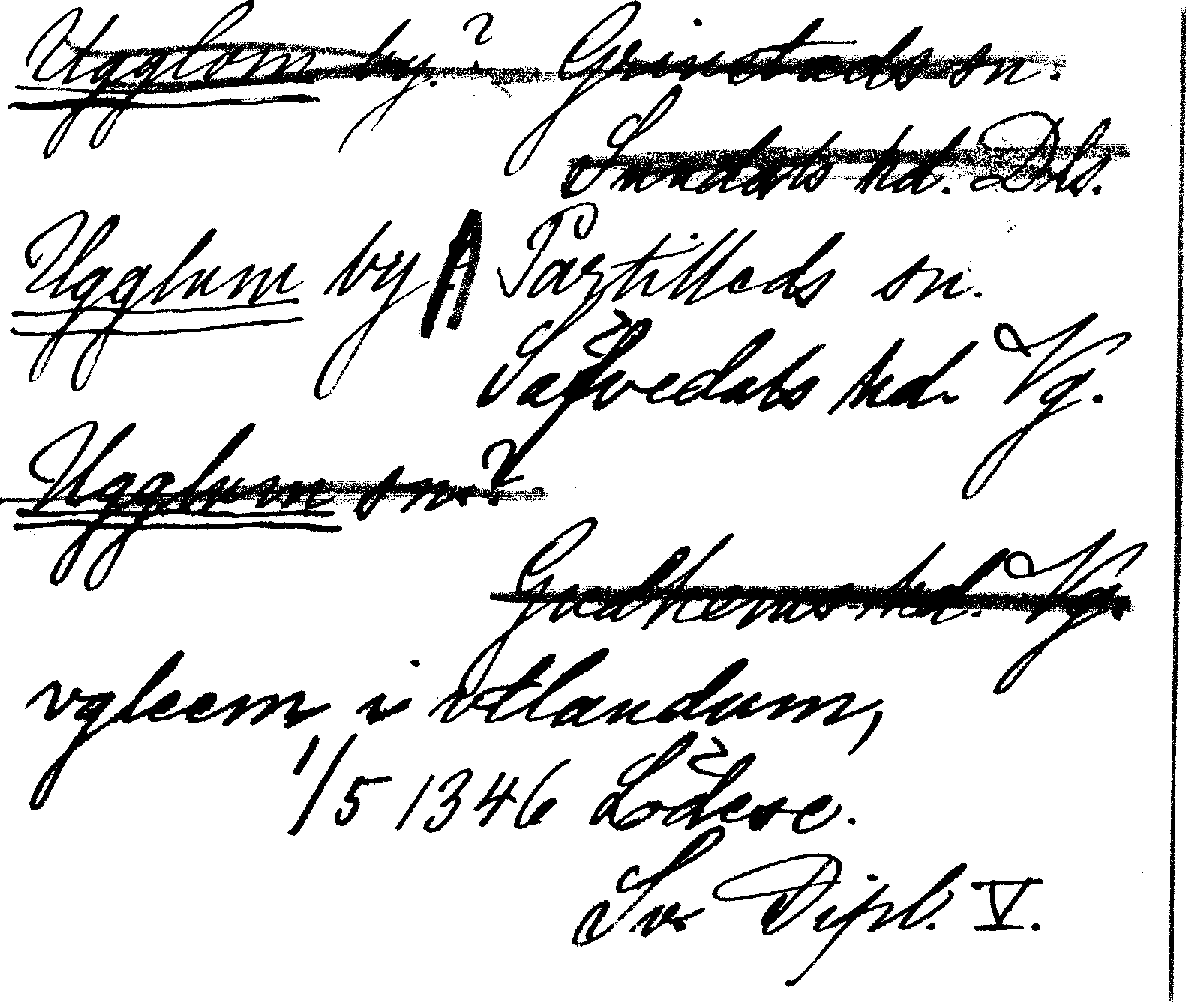 Ugglom by? Grinstads sn.
Sundals hd. Dls.
Ugglum by Partilleds sn.
Säfvedals hd. Vg.
Ugglum sn.?
Gudhems hd. Vg.
vgleem i vtlandum,
1/5 1346 Lödese.
Sv. Dipl. V.